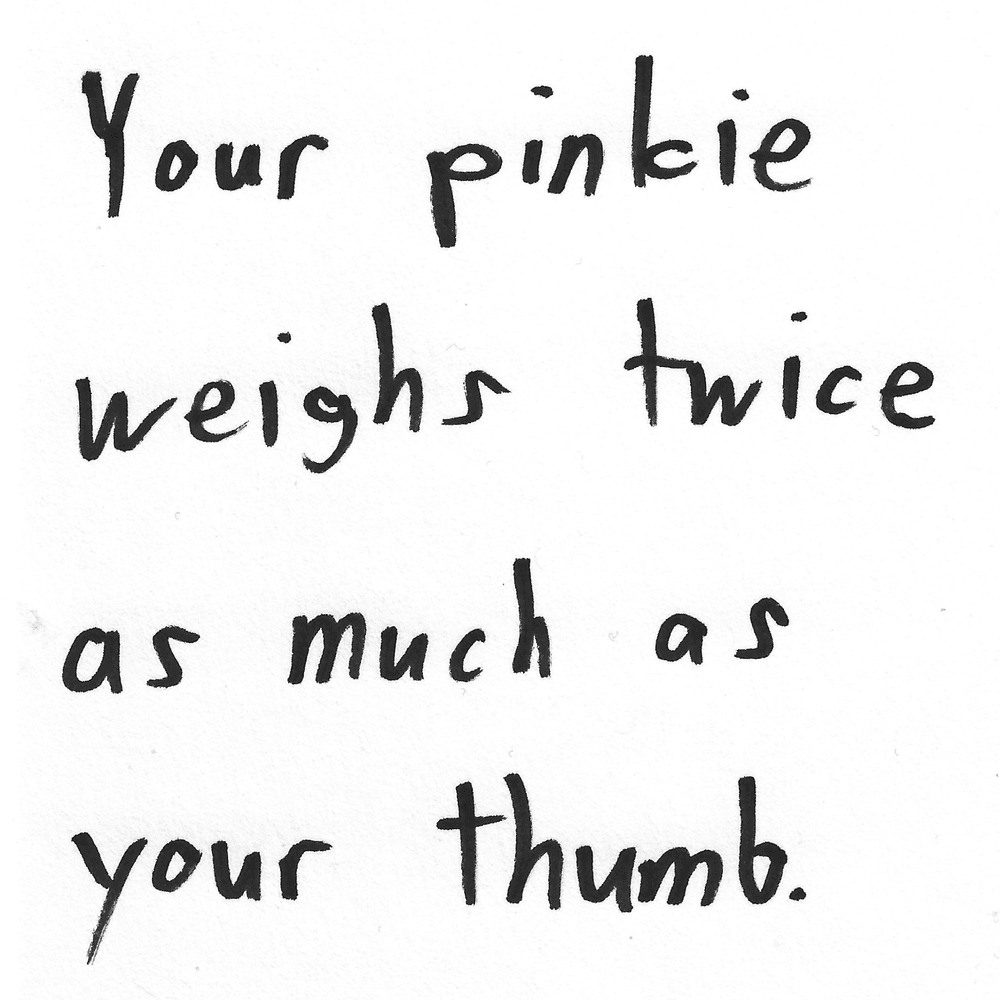 Your pinkie
weighs twice
as much as
your thumb.